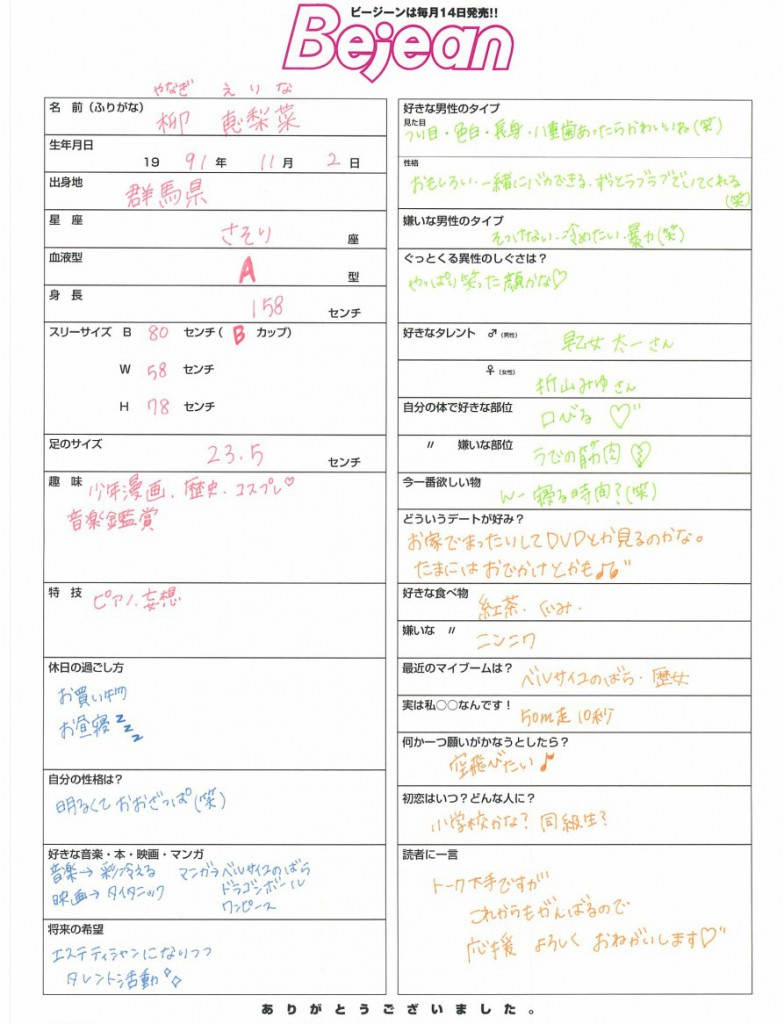 ビージーンは毎月14日発売!!
Bejean
名 前（ふりがな）
やなぎ えりな
柳 恵梨菜
生年月日
1991年 11月 2日
出身地
群馬県
星 座
さそり 座
血液型
A 型
身 長
158 センチ
スリーサイズ B 80 センチ( B カップ)
W 58 センチ
H 78 センチ
足のサイズ
23.5 センチ
趣 味 少年漫画、歴史、コスプレ♡
音楽鑑賞
特 技 ピアノ、妄想
休日の過ごし方
お買い物
お昼寝zzz
自分の性格は？
明るくておおざっぱ(笑)
好きな音楽・本・映画・マンガ
音楽→ 彩冷える マンガ→ベルサイユのばら
映画→ タイタニック ドラゴンボール
ワンピース
将来の希望
エステティシャンになりつつ
タレント活動
好きな男性のタイプ
見た目
つり目・色白・長身・八重歯あったらかわいいね(笑)
性格
おもしろい・一緒にバカできる・ずっとラブラブでいてくれる
(笑)
嫌いな男性のタイプ
そっけない・冷めたい・暴力(笑)
ぐっとくる異性のしぐさは？
やっぱり笑った顔かな♡
好きなタレント ♂（男性）
早乙女太一さん
♀（女性）
折山みゆさん
自分の体で好きな部位
口びる ♡
〃 嫌いな部位
うでの筋肉
今一番欲しい物
んー寝る時間？(笑)
どういうデートが好み？
お家でまったりしてDVDとか見るのかな。
たまにはおでかけとかも♪
好きな食べ物
紅茶、ぐみ、
嫌いな 〃
ニンニク
最近のマイブームは？
ベルサイユのばら・歴女
実は私○○なんです！
50m走10秒
何か一つ願いがかなうとしたら？
空飛びたい♪
初恋はいつ？どんな人に？
小学校かな？同級生？
読者に一言
トーク下手ですが
これからもがんばるので
応援 よろしく おねがいします♡
ありがとうございました。